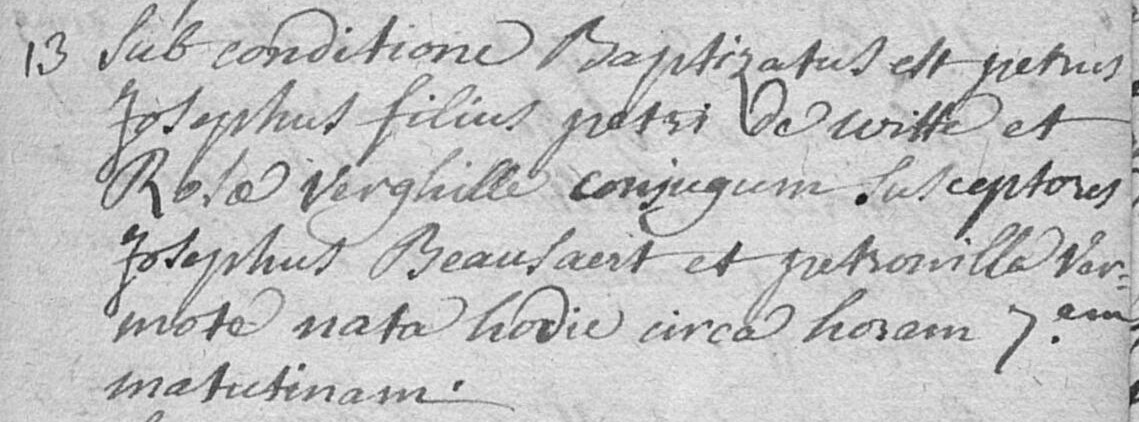 13 Sub conditione Baptizatus est petrus
Josephus filius petri De witte et
Rosæ verghille conjugum Susceptores
Josephus Beausaert et petronilla Ver=
mote nata hodie circa horam 7.am
matutinam.